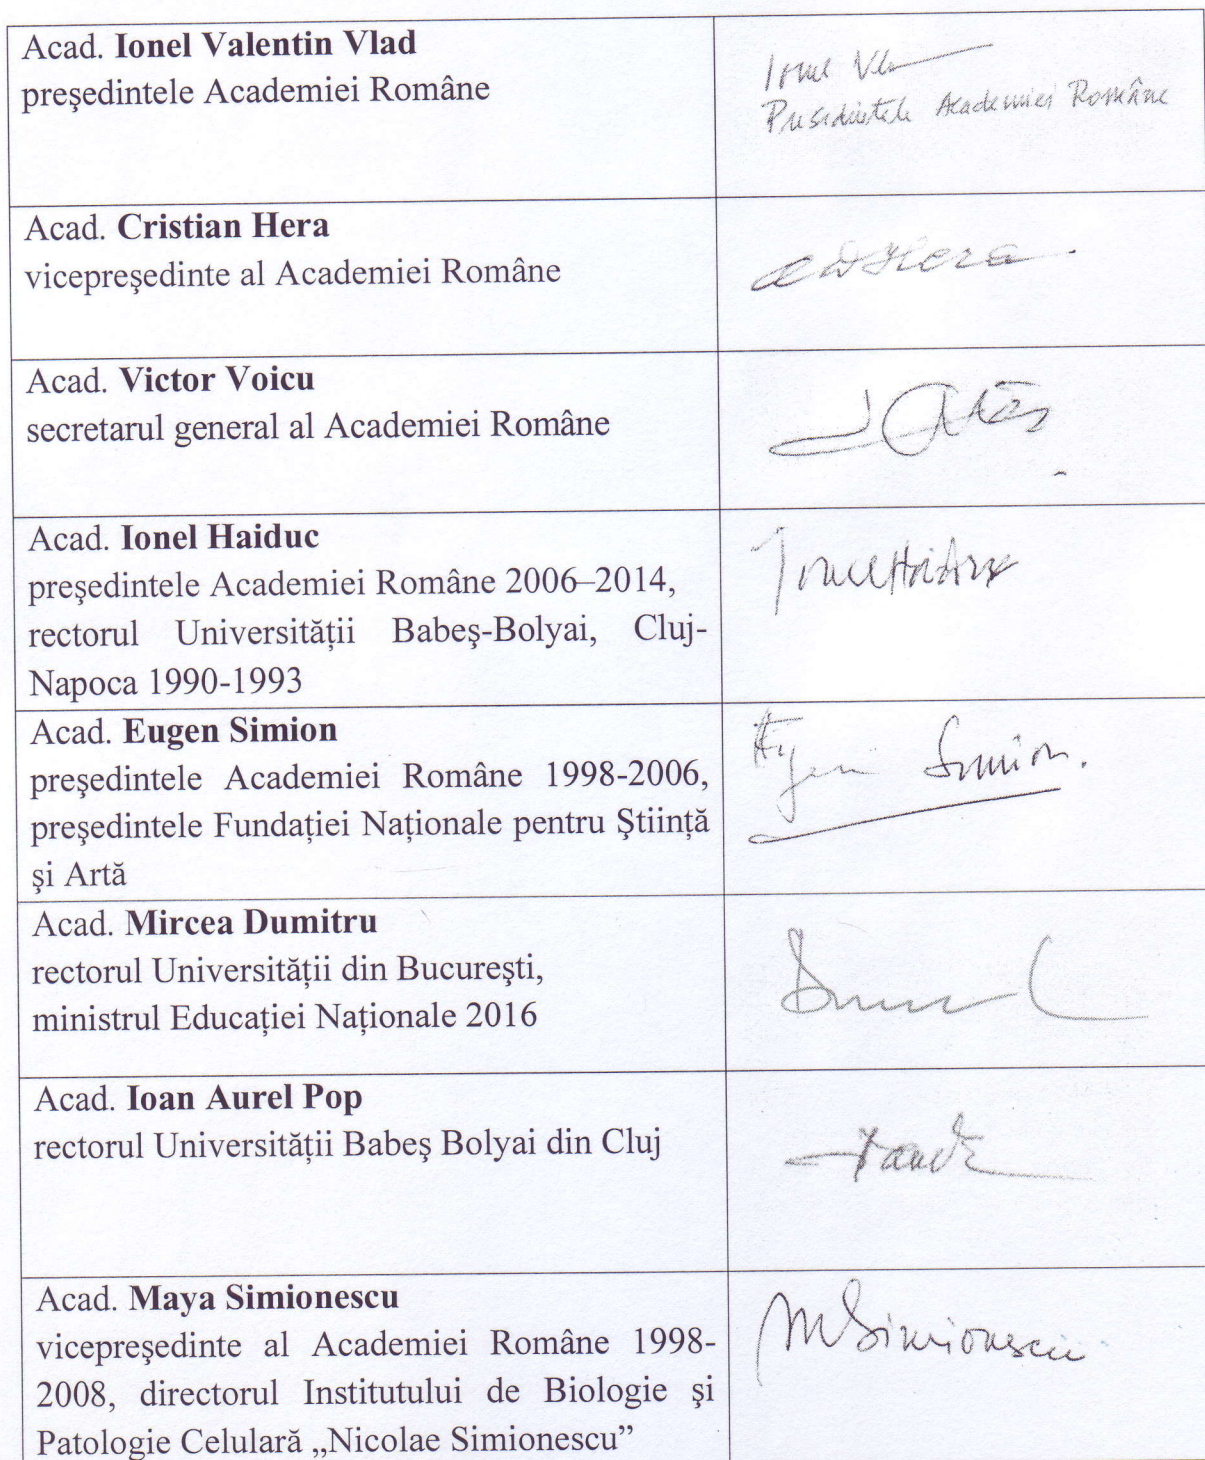 Acad. Ionel Valentin Vlad
preşedintele Academiei Române
Ionel Vlad
Presidintele Academiei Române
Acad. Cristian Hera
vicepreşedinte al Academiei Române
Hera
Acad. Victor Voicu
secretarul general al Academiei Române
Acad. Ionel Haiduc
preşedintele Academiei Române 2006–2014,
rectorul Universităţii Babeş-Bolyai, Cluj-
Napoca 1990-1993
Ionel Haiduc
Acad. Eugen Simion
preşedintele Academiei Române 1998-2006,
preşedintele Fundaţiei Naţionale pentru Ştiinţă
şi Artă
Eugen Simion.
Acad. Mircea Dumitru
rectorul Universităţii din Bucureşti,
ministrul Educaţiei Naţionale 2016
Acad. Ioan Aurel Pop
rectorul Universităţii Babeş Bolyai din Cluj
Acad. Maya Simionescu
vicepreşedinte al Academiei Române 1998-
2008, directorul Institutului de Biologie şi
Patologie Celulară „Nicolae Simionescu”
MSimionescu